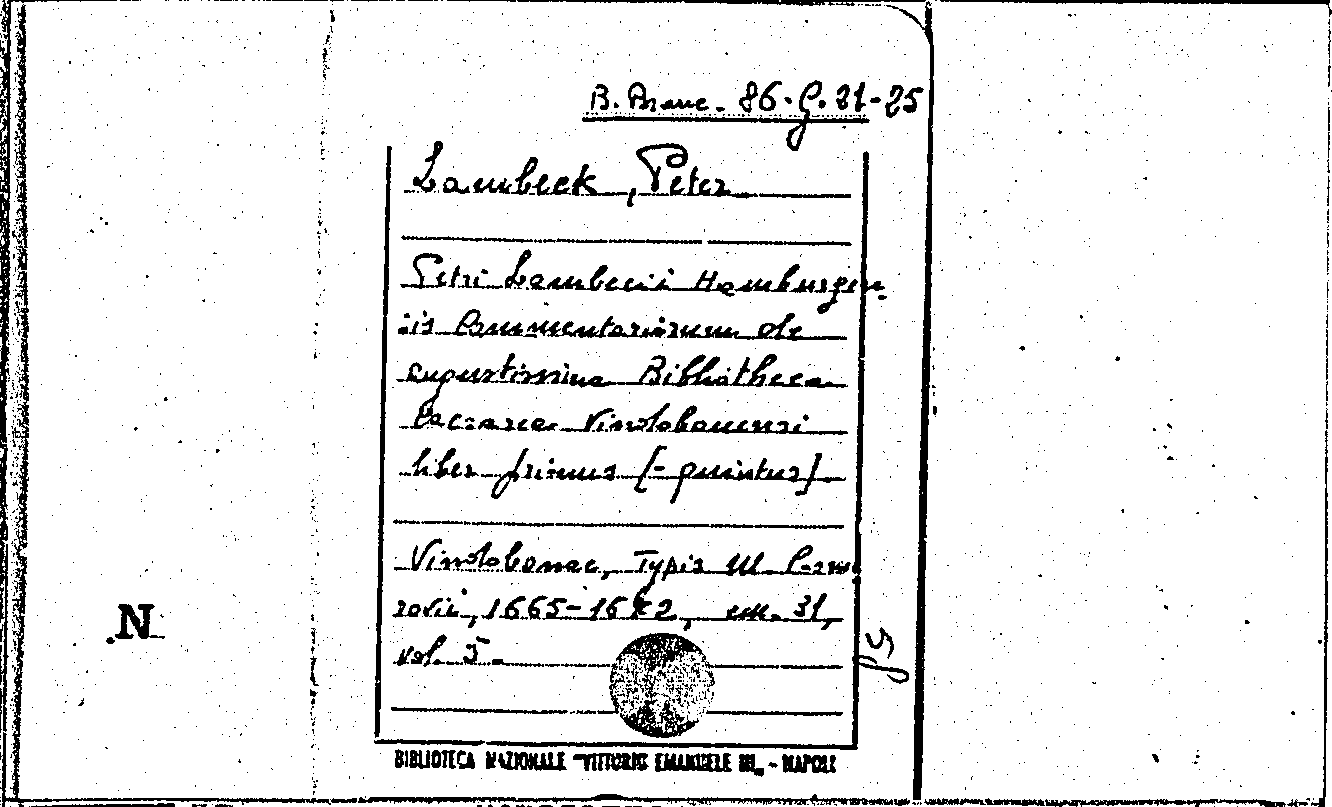 B. Branc. 86. G. 21-25
Lambeck, Peter
Petri Lambecii Hamburgen-
sis Commentariorum de
augustissima Bibliotheca
Caesarea Vindobonensi
liber primus [-quintus]
Vindobonae, Typis M. Cosme-
rovii, 1665-1672, cm. 31,
vol. 5.
N
BIBLIOTECA NAZIONALE "VITTORIO EMANUELE III„ - NAPOLI